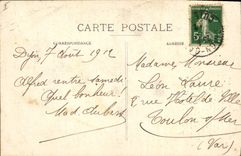 CARTE POSTALE
CORRESPONDANCE
ADRESSE
Dijon, 7 Août 1912
Alfred rentre samedi
Quel bonheur!
Mad. Aubert
Madame Monsieur
Léon Laure
rue Hôtel de Ville
Toulon s/ mer
(Var)